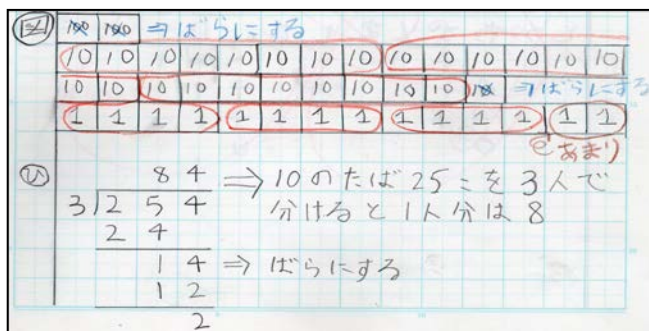 図 100 100 ⇒ばらにする
10 10 10 10 10 10 10 10 10 10 10 10 10 10
10 10 10 10 10 10 10 10 10 10 10 ⇒ばらにする
1 1 1 1 1 1 1 1 1 1 1 1 1 1
あまり
ひ 84 ⇒10のたば25こを3人で
3)254 分けると1人分は8
24
14 ⇒ばらにする
12
2